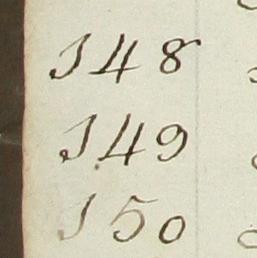 148
149
150